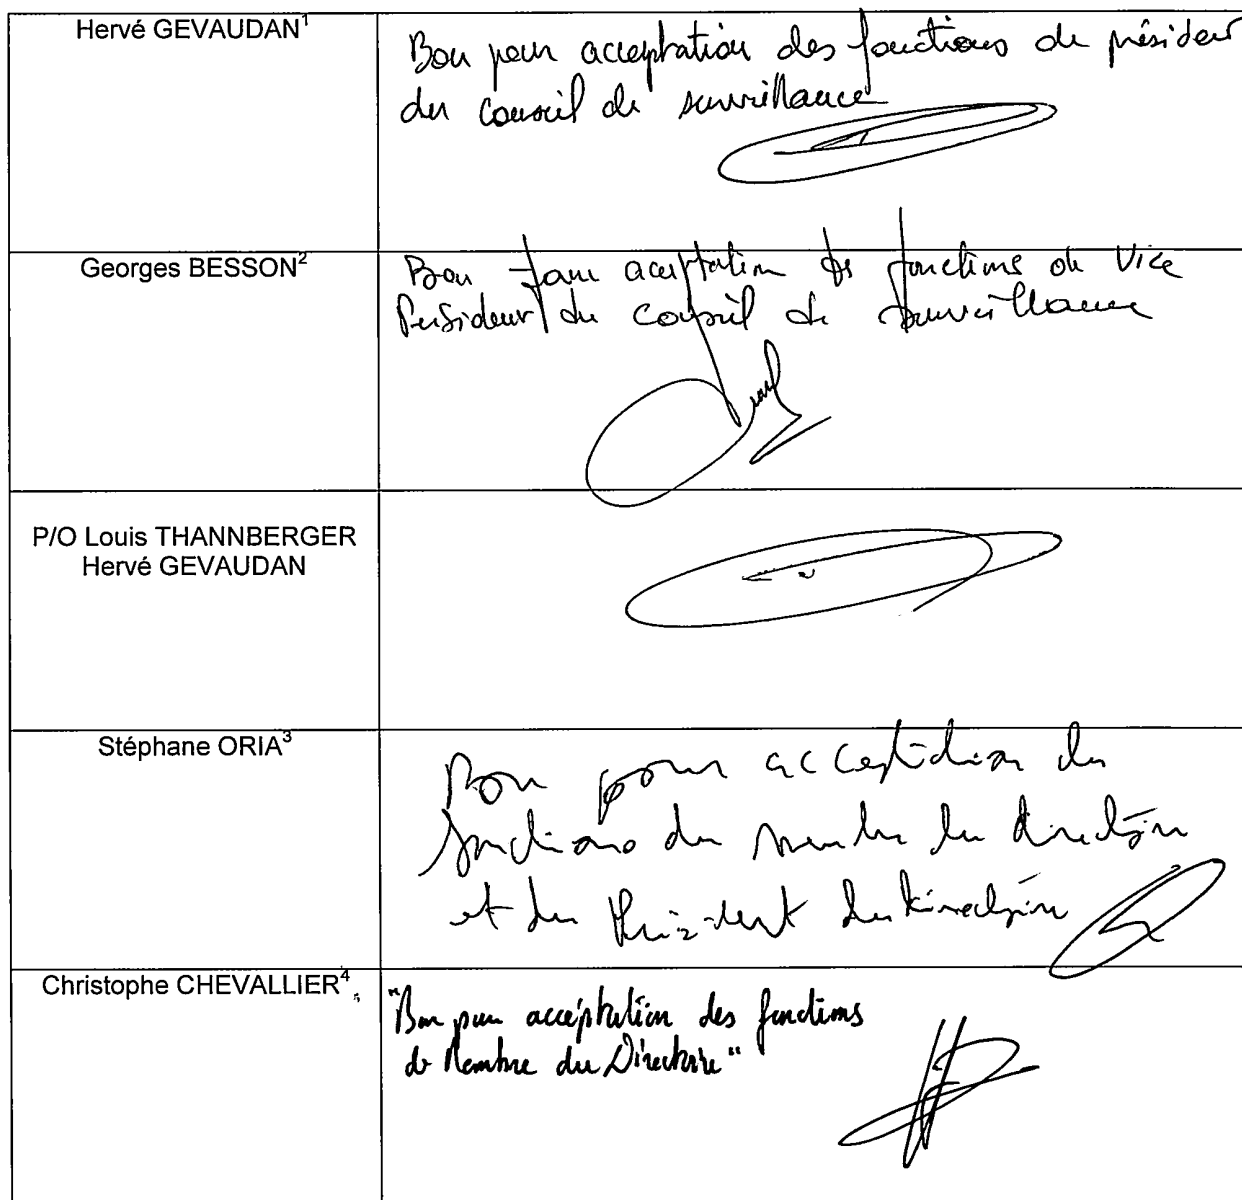 Hervé GEVAUDAN¹
Bon pour acceptation des fonctions de président
du conseil de surveillance
Georges BESSON²
Bon pour acceptation des fonctions de Vice
Président du conseil de surveillance
P/O Louis THANNBERGER
Hervé GEVAUDAN
Stéphane ORIA³
Bon pour acceptation des
fonctions de membre du directoire
et de Président du directoire
Christophe CHEVALLIER⁴
"Bon pour acceptation des fonctions
de Membre du Directoire"